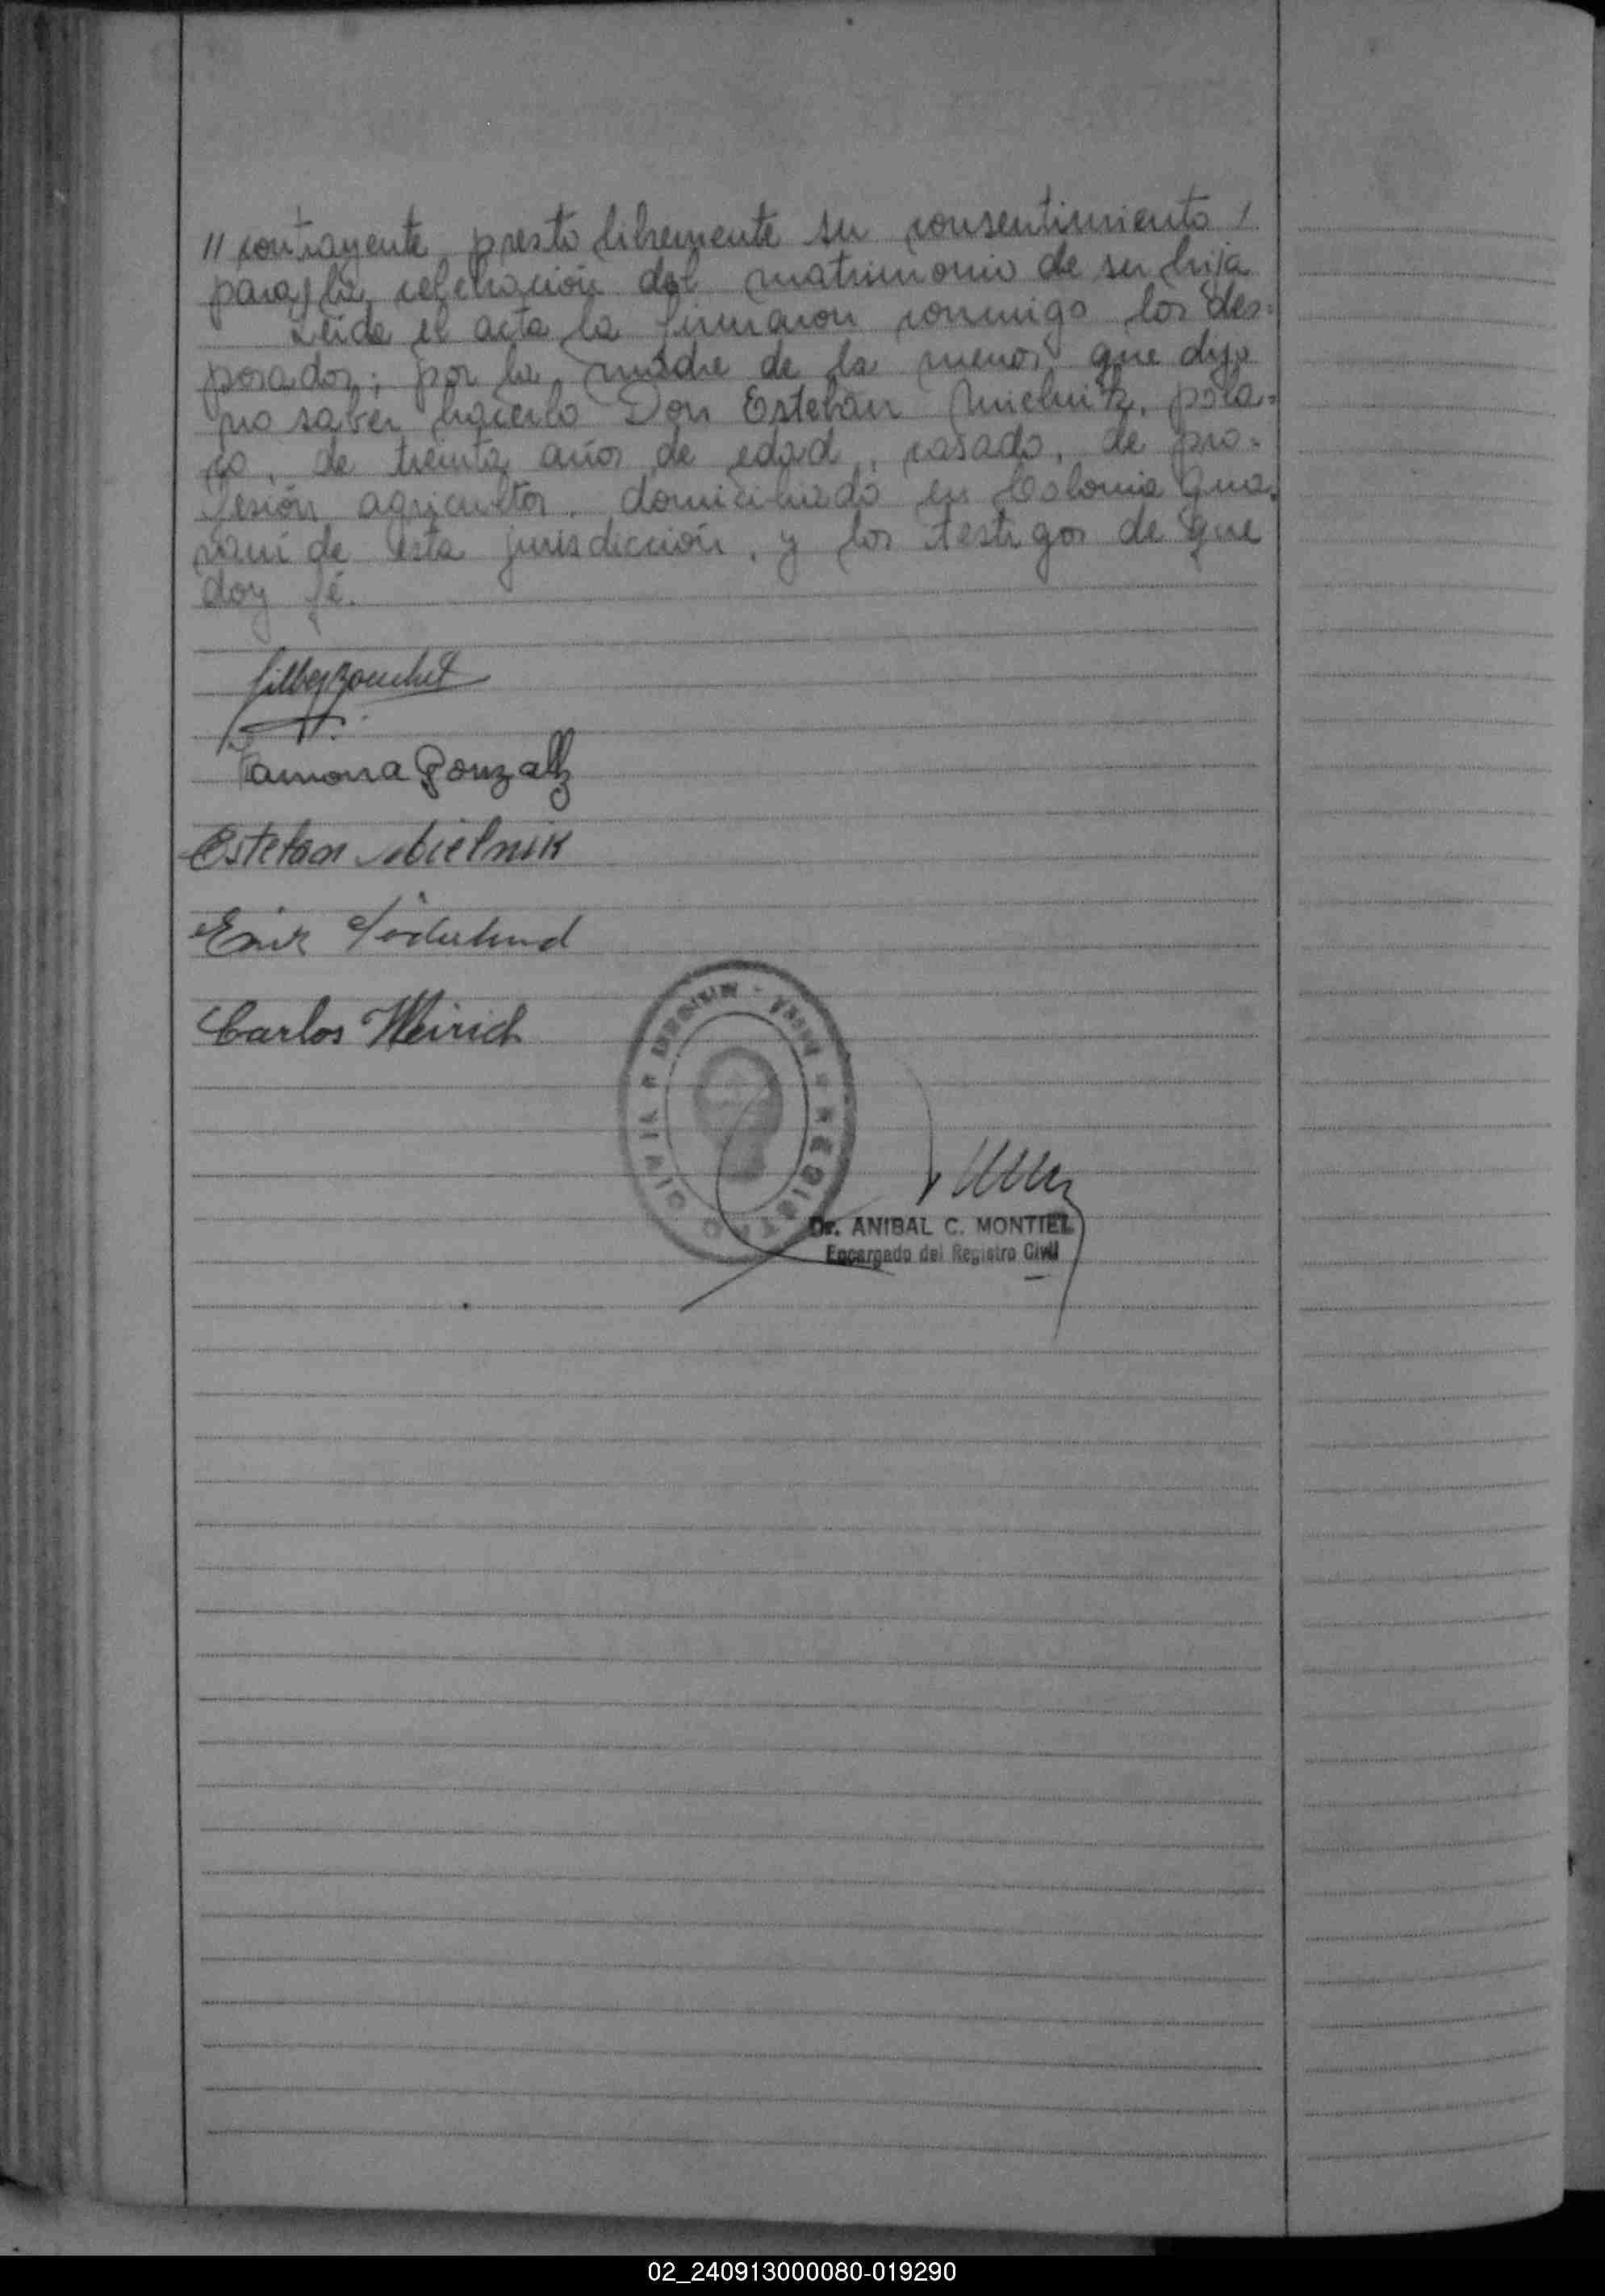 // contrayente prestó libremente su consentimiento /
para la celebración del matrimonio de su hija
Leída el acta la firmaron conmigo los des-
posados; por la madre de la menor, que dijo
no saber hacerlo Don Esteban Mielnik, pola-
co, de treinta años de edad, casado, de pro-
fesión agricultor, domiciliado en Colonia Gua-
raní de esta jurisdicción, y los testigos de que
doy fé.
Ramona Gonzalez
Estefan Mielnik
Erik Söderlund
Carlos Weirich
REGISTRO CIVIL
Dr. ANIBAL C. MONTIEL
Encargado del Registro Civil
02_240913000080-019290